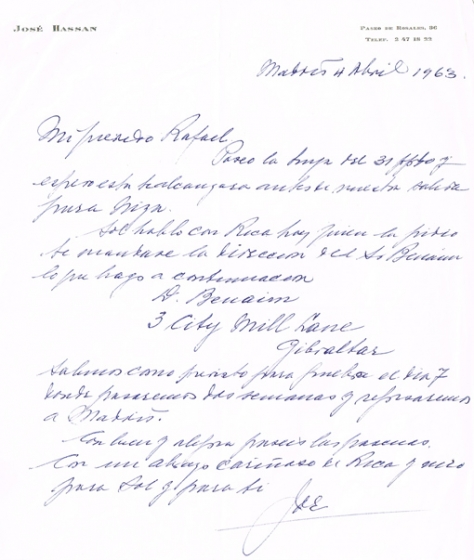 José Hassan
Paseo de Rosales, 56
Teléf. 2 47 18 22
Madrid 4 Abril 1963.
Mi querido Rafael,
Poseo la tuya del 31 ppdo y
espero esta te alcanzara antes de vuestra salida
para Niza.
Sol hablo con Rica hoy quien le pidio
te mandase la direccion del Sr Benaim
lo que hago a continuacion
A. Benaim
3 City Mill Lane
Gibraltar
Salimos como previsto para el dia 7
donde pasaremos dos semanas y regresaremos
a Madrid.
Con bien y alegria paseis las pascuas.
Con un abrazo cariñoso de Rica y mio
para Sol y para ti
Joe